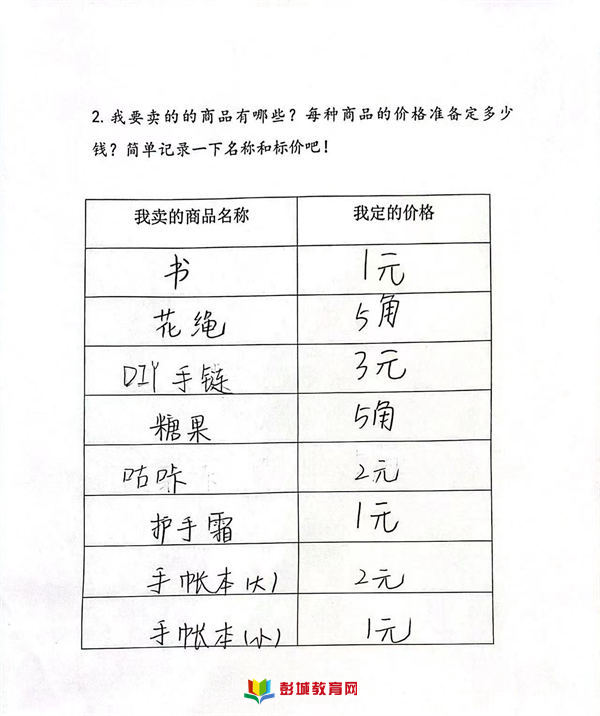 2. 我要卖的的商品有哪些？每种商品的价格准备定多少
钱？简单记录一下名称和标价吧！
我卖的商品名称 我定的价格
书 1元
花绳 5角
DIY手链 3元
糖果 5角
咕咔 2元
护手霜 1元
手帐本(大) 2元
手帐本(小) 1元
彭城教育网